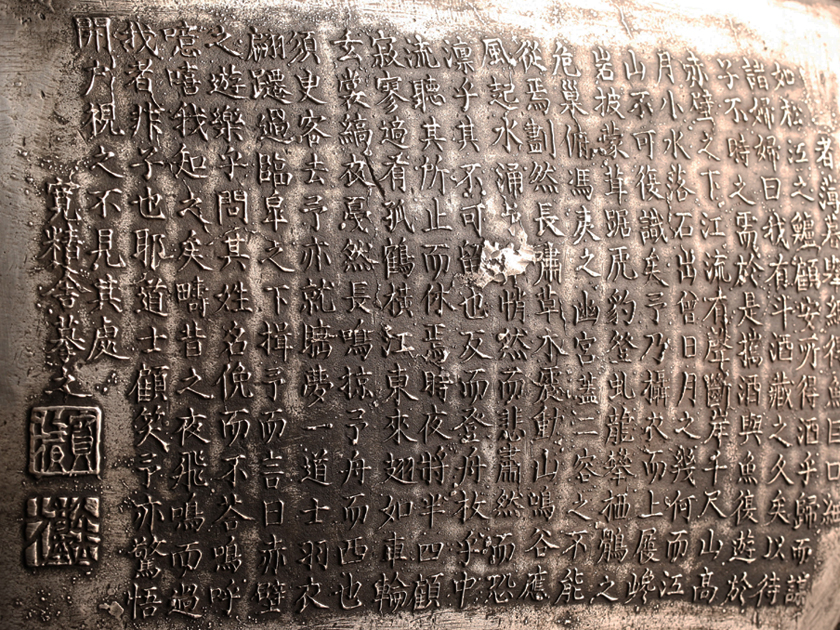 者
如松江之鱸顧安所得酒乎歸而謀
諸婦婦曰我有斗酒藏之久矣以待
子不時之需於是攜酒與魚復遊於
赤壁之下江流有聲斷岸千尺山高
月小水落石出曾日月之幾何而江
山不可復識矣予乃攝衣而上履巉
岩披蒙茸踞虎豹登虬龍攀栖鶻之
危巢俯馮夷之幽宮蓋二容之不能
從焉劃然長嘯草木震動山鳴谷應
風起水涌悄然而悲肅然而恐
凛乎其不可留也反而登舟放乎中
流聽其所止而休焉時夜將半四顧
寂寥適有孤鶴橫江東來翅如車輪
玄裳縞衣戛然長鳴掠予舟而西也
須臾客去予亦就睡夢一道士羽衣
翩躚過臨皋之下揖予而言曰赤壁
之遊樂乎問其姓名俛而不答嗚呼
噫嘻我知之矣疇昔之夜飛鳴而過
我者非子也耶道士顧笑予亦驚悟
開戶視之不見其處
寬精舍摹之